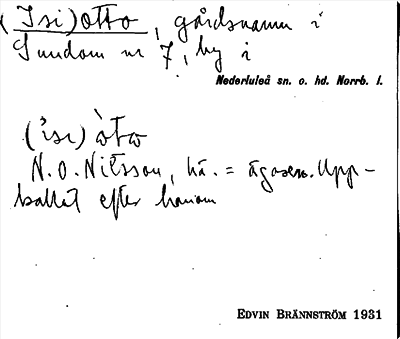 (Isi)otto, gårdsnamn i
Sundom nr 7, by i
Nederluleå sn. o. hd. Norrb. l.
(ˈisi) òto
N.O. Nilsson, hä. = ägaren. Upp-
kallat efter honom
EDVIN BRÄNNSTRÖM 1931